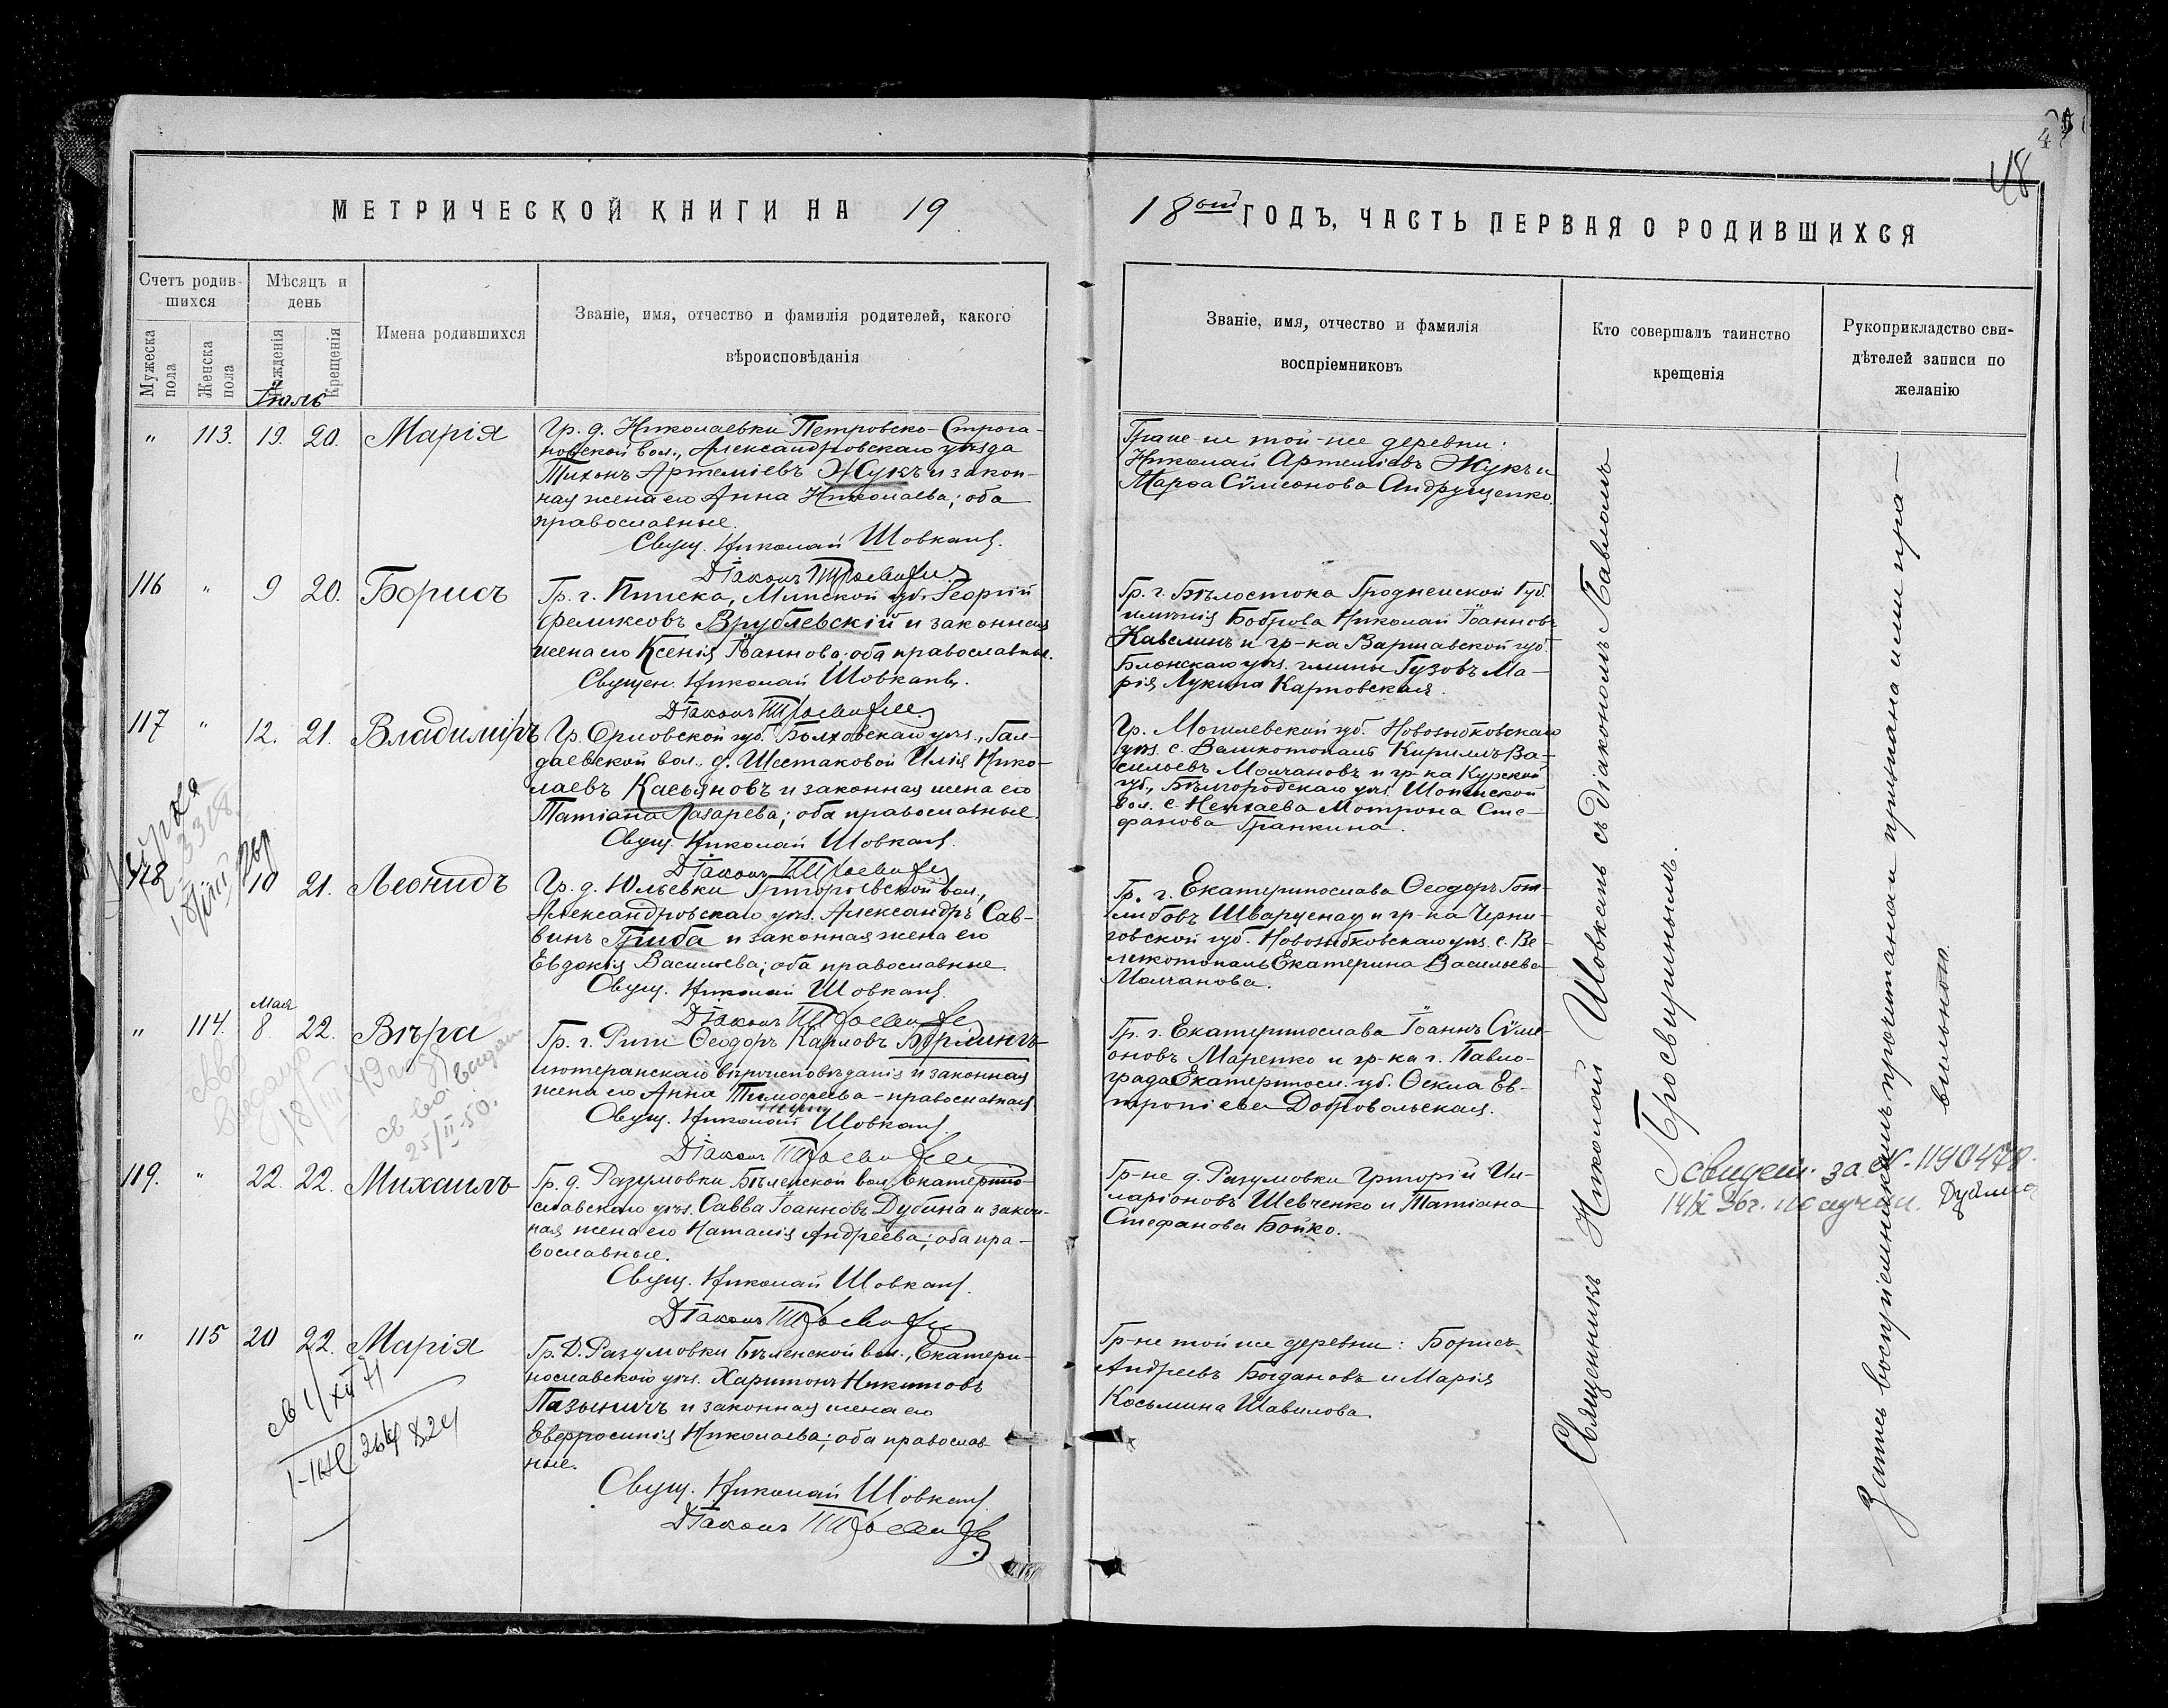 48
МЕТРИЧЕСКОЙ КНИГИ НА 19
18ый ГОДЪ, ЧАСТЬ ПЕРВАЯ О РОДИВШИХСЯ
Счетъ родив-
шихся
Мужеска пола
Женска пола
Мѣсяцъ и
день
Рожденія
Крещенія
Имена родившихся
Званіе, имя, отчество и фамилія родителей, какого
вѣроисповѣданія
Званіе, имя, отчество и фамилія
воспріемниковъ
Кто совершалъ таинство
крещенія
Рукоприкладство сви-
дѣтелей записи по
желанію
Іюль
" 113. 19. 20. Марія
Гр. д. Николаевки Петровско-Строга-
новской вол., Александровскаго уѣзда
Тихонъ Артеміевъ Жукъ и закон-
ная жена его Анна Николаева; оба
православные.
Свящ. Николай Шовкапь.
Діаконъ
Граж-не той-же деревни:
Николай Артеміевъ Жукъ и
Марѳа Сѵмеонова Андрущенко.
116 " 9 20. Борисъ
Гр. г. Пинска, Минской губ. Георгій
Феликсовъ Врублевскій и законная
жена его Ксенія Іоаннова; оба православные.
Священ. Николай Шовкапь.
Діаконъ
Гр. г. Бѣлостока Гродненской Губ.
имѣнія Боброва Николай Іоанновъ
Кавелинъ и гр-ка Варшавской губ.
Блонскаго уѣз. гмины Гузовъ Ма-
рія Лукина Карповская.
117 " 12. 21. Владиміръ
Гр. Орловской губ. Болховскаго уѣз., Гал-
даевской вол., д. Шестаковой Илія Нико-
лаевъ Касьяновъ и законная жена его
Татіана Лазарева; оба православные.
Свящ. Николай Шовкапь.
Діаконъ
Гр. Могилевской губ. Новозыбковскаго
уѣз. с. Великотопаль Кириллъ Ва-
сильевъ Молчановъ и гр-ка Курской
губ., Бѣлгородскаго уѣз. Шопинской
вол. с. Нехаева Мотрона Сте-
фанова Гранкина.
118 10 21. Леонидъ
Гр. д. Юльевки Григорьевской вол.,
Александровскаго уѣз. Александръ Сав-
винъ Глиба и законная жена его
Евдокія Васильева; оба православные.
Свящ. Николай Шовкапь.
Діаконъ
Гр. г. Екатеринослава Ѳеодоръ Гот-
либовъ Шварценау и гр-ка Черни-
говской губ. Новозыбковскаго уѣз. с. Ве-
ликотопаль Екатерина Васильева
Молчанова.
Мая
" 114. 8. 22. Вѣра
Гр. г. Риги Ѳеодоръ Карловъ Берлингъ
лютеранскаго вѣроисповѣданія и законная
жена его Анна Тимофеева - православная
Свящ. Николай Шовкапь.
Діаконъ
Гр. г. Екатеринослава Іоаннъ Сѵме-
оновъ Маренко и гр-ка г. Павло-
града Екатериносл. губ. Ѳекла Ев-
тропіева Добровольская.
выдано
18/III 49 г.
25/II-50.
119. " 22. 22. Михаилъ
Гр. д. Разумовки Бѣленской вол. Екатерино-
славскаго уѣз. Савва Іоанновъ Дубина и закон-
ная жена его Наталія Андреева; оба пра-
вославные.
Свящ. Николай Шовкапь.
Діаконъ
Гр-не д. Разумовки Григорій Ил-
ларіоновъ Шевченко и Татіана
Стефанова Бойко.
" 115 20 22. Марія
Гр. Д. Разумовки Бѣленской вол., Екатери-
нославскаго уѣз. Харитонъ Никитовъ
Пазыничъ и законная жена его
Евфросинія Николаева; оба православ-
ные.
Свящ. Николай Шовкапь.
Діаконъ
Гр-не той же деревни: Борисъ
Андреевъ Богдановъ и Марія
Косьмина Шавилова.
Священникъ Николай Шовкапь съ діакономъ Павломъ
Просвиринымъ.
Запись воспріемникамъ прочитана и признана ими пра-
вильною.
свидет. за № 1190478.
14/X 36г. получил. Дубина